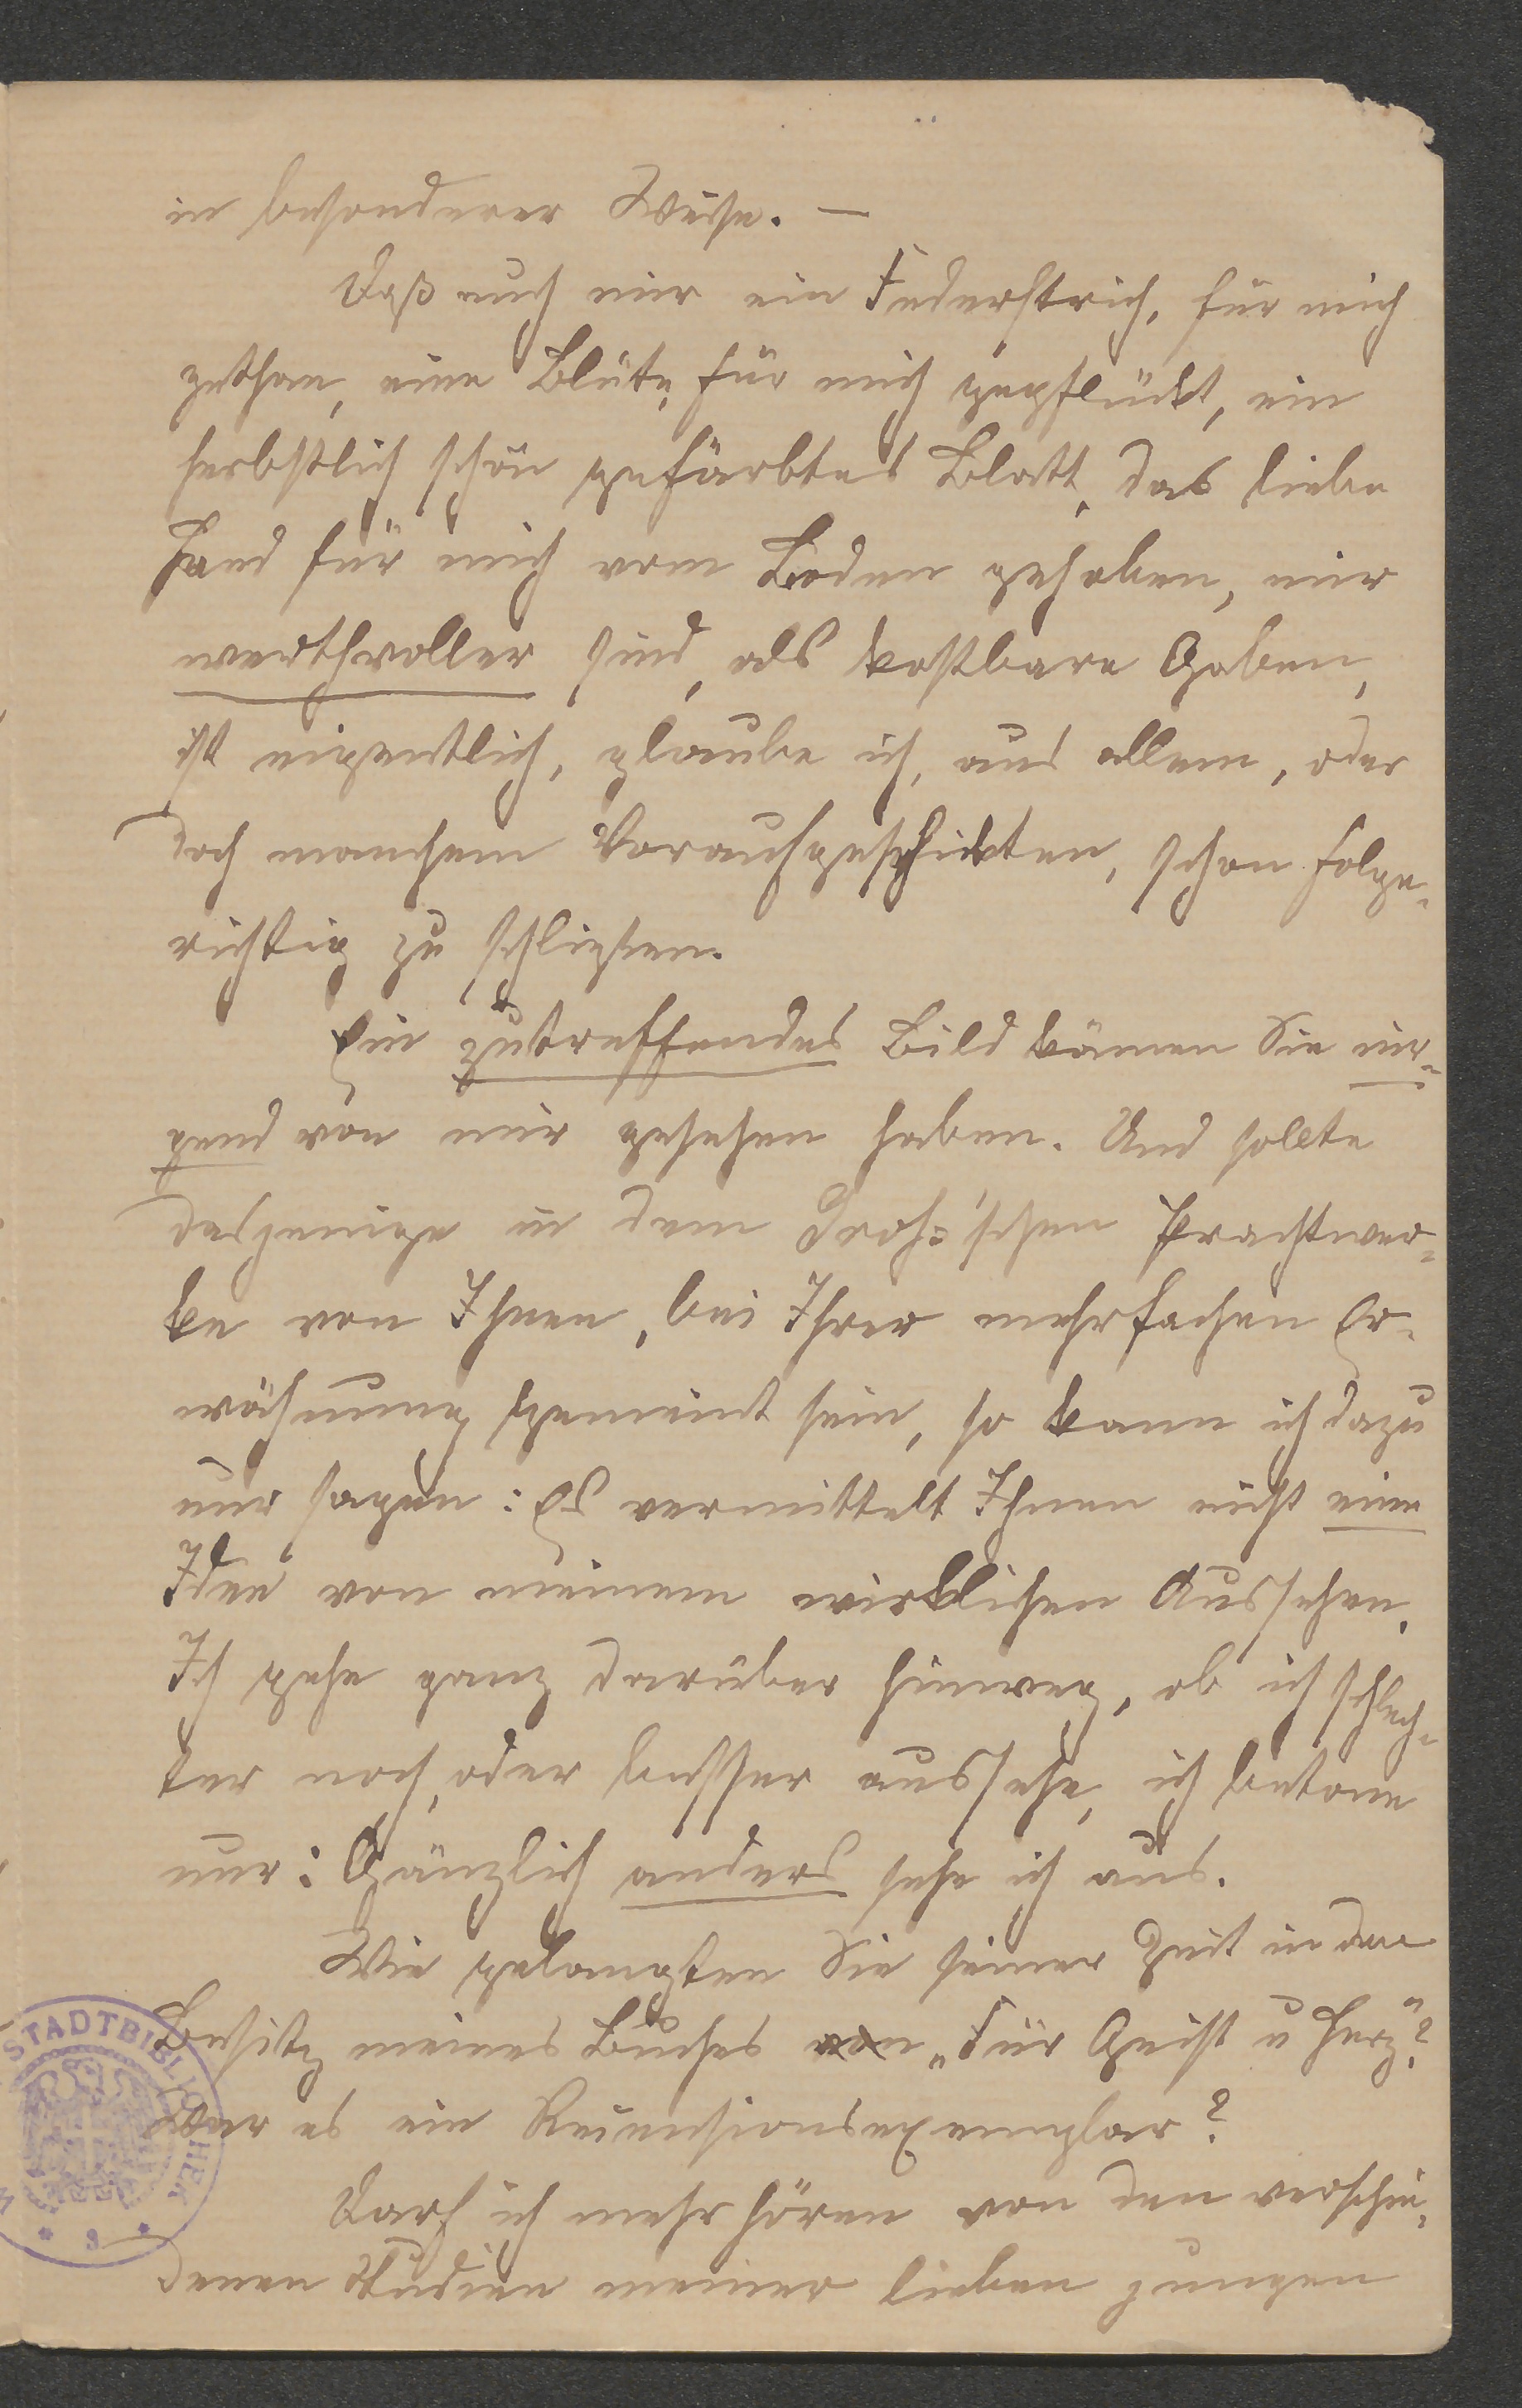 in besonderer Weise. —
Daß auch nur ein Federstrich, für mich
gethan, eine Blüte, für mich gepflückt, ein
herbstlich schön gefärbtes Blatt, das liebe
Hand für mich vom Boden gehoben, mir
werthvoller sind, als kostbare Gaben,
ist eigentlich, glaube ich, aus allem, oder
doch manchem Voraufgeschickten, schon folge-
richtig zu schließen.
Ein zutreffendes Bild können Sie nir-
gend von mir gesehen haben. Und sollte
dasjenige in dem 'schen Prachtwer-
ke von Ihnen, bei Ihrer mehrfachen Er-
wähnung gemeint sein, so kann ich dazu
nur sagen: Es vermittelt Ihnen nicht eine
Idee von meinem wirklichen Aussehen.
Ich gehe ganz darüber hinweg, ob ich schlech-
ter noch, oder besser aussehe, ich betone
nur: Gänzlich anders sehe ich aus.
Wie gelangten Sie seiner Zeit in den
Besitz meines Buches von „Für Geist u Herz"?
War es ein Recensionsexemplar?
Darf ich mehr hören von den verschie-
denen Studien meiner lieben jungen
STADTBIBLIOTHEK